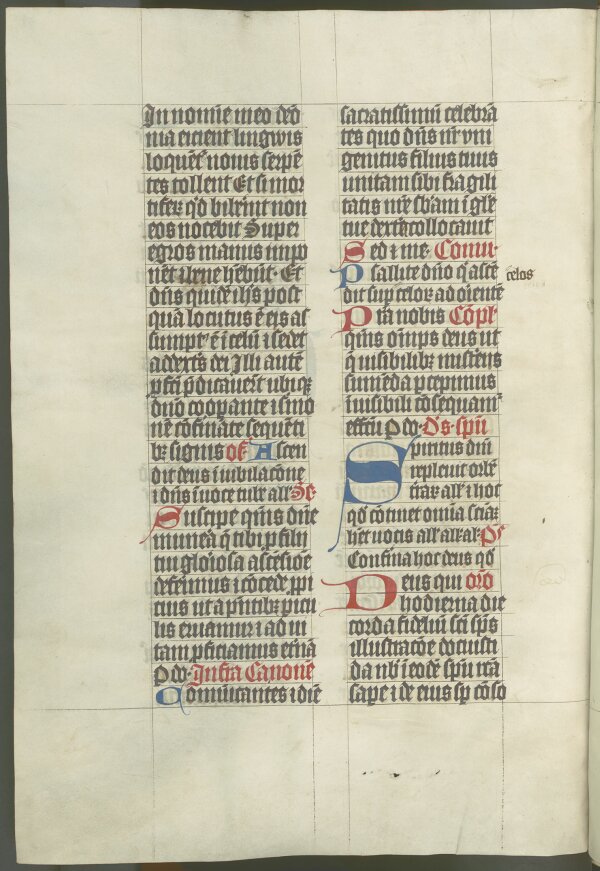 In nomīe meo dēō
nia eicient lingwis
loquēt nouis serpē
tes tollent Et si mor
tifeꝝ qd biberint non
eos nocebit Super
egros manus impo
nēt ⁊ bene hēbūt · Et
dn̄s quidē ihs post
quā locutus ē eis as
sumptꝰ ē ī celū ⁊ sedet
a dextris dei Illi autē
pfcti p̄dicauer̄t ubiqꝫ
dn̄o coopante ⁊ smo
nē cōfirmāte sequēti
bꝫ signis of Ascen
dit deus ī iubilacōne
⁊ dn̄s ī uoce tube all̄a Se
Suscipe qms dn̄e
munera q̄ tibi p filij
tui gloiosa ascēsiōe
deferimus ⁊ cōcede ppi
cius ut a p̄ntibꝫ picu
lis eruamur ⁊ ad ui
tam pficiamus etnā
p do · Infra Canonē
Comunicantes ⁊ diē
sacratissimū celebrā
tes quo dn̄s nr̄ vni
genitus filius tuus
unitam sibi fragili
tatis nr̄e sbam ī glē
tue dextera collocauit
Sed ⁊ me · Comu ·
Psallite dn̄o q̄ ascē celos
dit sup celos ad oriente
Pra nobis Cōpl ·
qms om̄ps deus ut
q̄ uisibilibꝫ misteriis
sumēda pcepimus
inuisibili cōsequamꝰ
effctu p do · Dˢ · spū
Spiritus dn̄i
repleuit orbē
t̄rar all̄ ⁊ hoc
qd cōtinet omnia sciāꝫ
hēt uocis all̄ all̄ all̄ Pˢ
Confirma hoc deus qd
Deus qui oro
hodierna die
corda fideliū sci sp̄s
illustracōe docuisti
da nb̄ ī eodē spū rcā
sape ⁊ de eius sp cōso